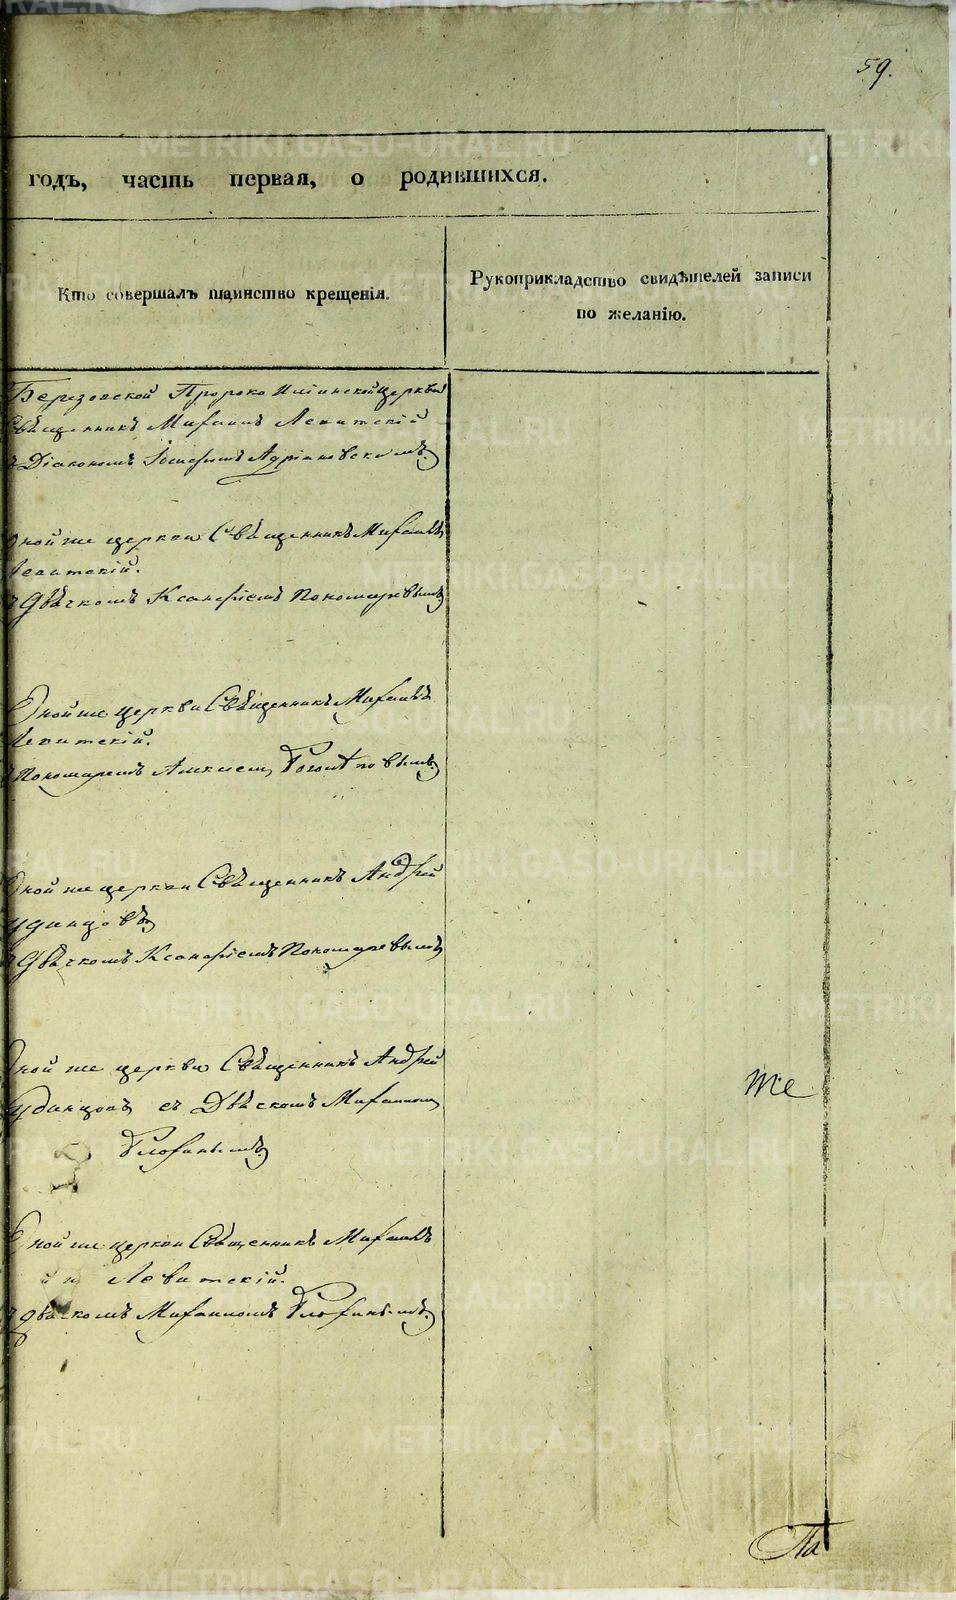 59.
годъ, часть первая, о родившихся.
Кто совершалъ таинство крещенія.
Рукоприкладство свидѣтелей записи
по желанію.
Березовской Пророко Илiинской церкви
Священникъ Михаилъ Левитскій
съ Діакономъ Іосифомъ Адріановскимъ.
Оной же церкви Священникъ Михаилъ
Левитскій.
съ Дьячкомъ Ксанфіемъ Пономаревымъ
Оной же церкви Священникъ Михаилъ
Левитскій.
съ Пономаремъ
Оной же церкви Священникъ Андрей
Удинцовъ
съ Дьячкомъ Ксанфіемъ Пономаревымъ
Оной же церкви Священникъ Андрей
Удинцовъ съ Дьячкомъ Михаиломъ
же
Оной же церкви Священникъ Михаилъ
Левитскій.
съ Дьячкомъ Михаиломъ
METRIKI.GASO-URAL.RU